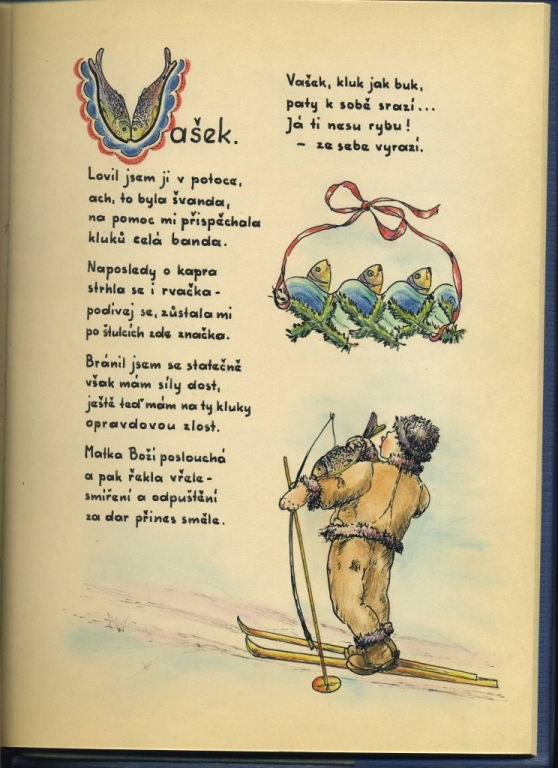 Vašek.
Vašek, kluk jak buk,
paty k sobě srazí...
Já ti nesu rybu!
– ze sebe vyrazí.
Lovil jsem ji v potoce,
ach, to byla švanda,
na pomoc mi přispěchala
kluků celá banda.
Naposledy o kapra
strhla se i rvačka -
podívej se, zůstala mi
po štulcích zde značka.
Bránil jsem se statečně
však mám síly dost,
ještě teď mám na ty kluky
opravdovou zlost.
Matka Boží poslouchá
a pak řekla vřele -
smíření a odpuštění
za dar přines směle.